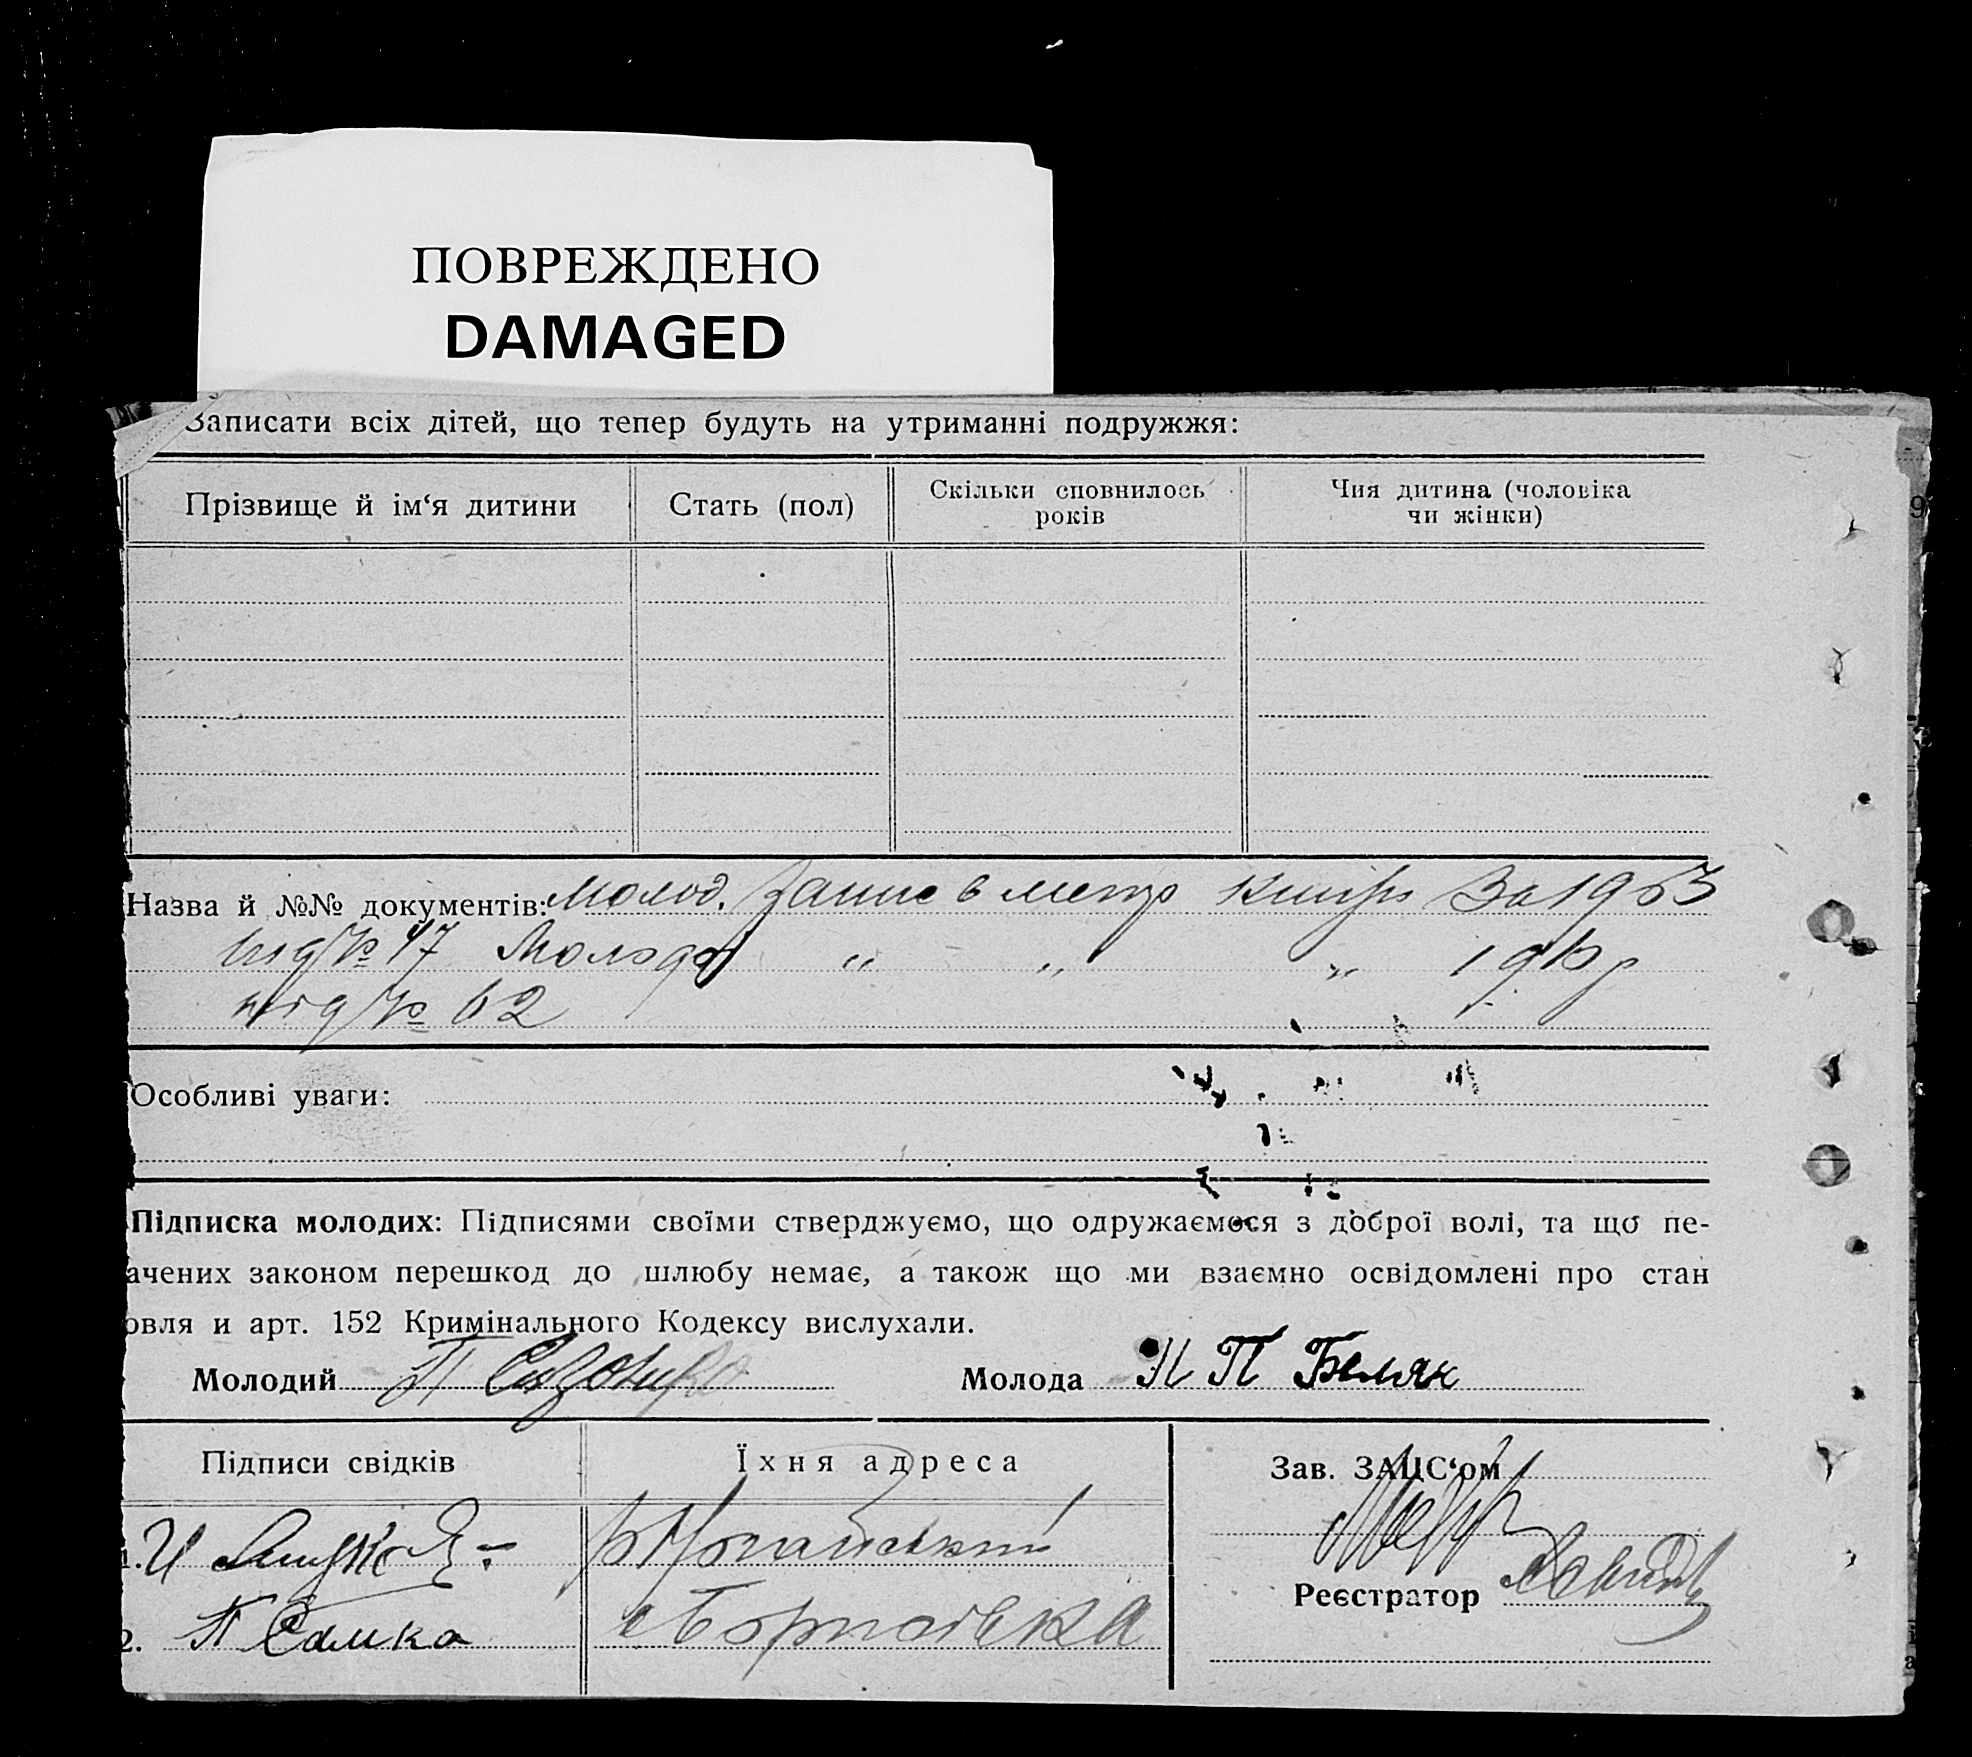 ПОВРЕЖДЕНО
DAMAGED
Записати всіх дітей, що тепер будуть на утриманні подружжя:
Прізвище й ім‘я дитини
Стать (пол)
Скільки сповнилось років
Чия дитина (чоловіка чи жінки)
Назва й №№ документів: Молод. Запис в метр книзи За 19
під № 47 Молода „ „ „
під № 62
Особливі уваги:
Підписка молодих: Підписями своїми стверджуємо, що одружаємося з доброї волі, та що пе-
ачених законом перешкод до шлюбу немає, а також що ми взаємно освідомлені про стан
овля и арт. 152 Кримінального Кодексу вислухали.
Молодий П
Молода Н П Беляк
Підписи свідків
Їхня адреса
Зав. ЗАЦС‘ом
1. И
2. П Самка
Реєстратор